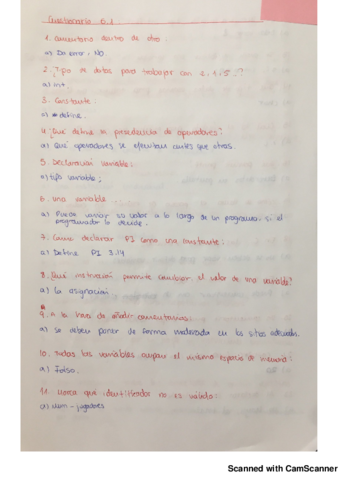 Cuestionario 0.1
1. Comentario dentro de otro.
a) Da error, NO.
2. ¿Tipo de datos para trabajar con
a) int.
3. Constante:
a) #define.
4. ¿Qué define la precedencia de operadores?
a) Qué operadores se ejecutan antes que otros.
5. Declaración variable:
a) tipo variable;
6. una variable
a) Puede variar su valor a lo largo de un programa, si el
programador lo decide.
7. Como declarar PI como una constante:
a) Define PI 3.14
8. ¿Qué instrucción permite cambiar el valor de una variable?
a) la asignación
9. A la hora de añadir comentarios:
a) se deben poner de forma moderada en los sitios adecuados.
10. Todas las variables ocupan el mismo espacio de memoria:
a) Falso.
11. Marca qué identificador no es válido:
a) num-jugadores
Scanned with CamScanner